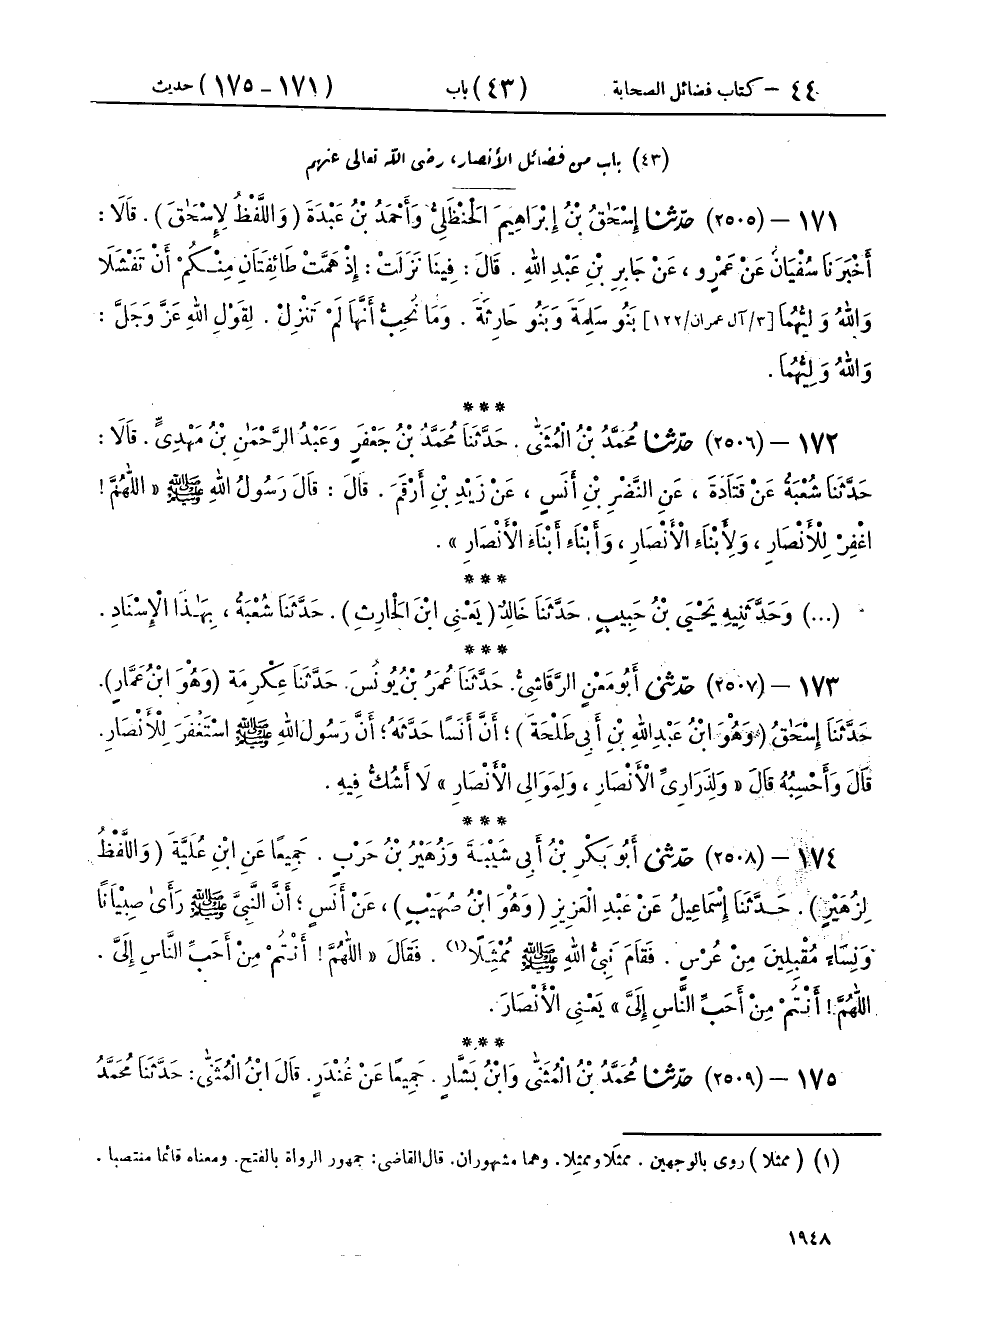 ٤٤ - كتاب فضائل الصحابة (٤٣) باب (١٧١ - ١٧٥) حديث
(٤٣) باب من فضائل الأنصار، رضى الله تعالى عنهم
١٧١ - (٢٥٠٥) حدّثنا إِسْحَٰقُ بْنُ إِبْرَاهِيمَ الْحَنْظَلِيُّ وَأَحْمَدُ بْنُ عَبْدَةَ (وَاللَّفْظُ لِإِسْحَٰقَ). قَالَا:
أَخْبَرَنَا سُفْيَانُ عَنْ عَمْرٍو، عَنْ جَابِرِ بْنِ عَبْدِ اللهِ. قَالَ: فِينَا نَزَلَتْ: إِذْ هَمَّتْ طَائِفَتَانِ مِنْكُمْ أَنْ تَفْشَلَا
وَاللهُ وَلِيُّهُمَا [٣/آل عمران/١٢٢] بَنُو سَلِمَةَ وَبَنُو حَارِثَةَ. وَمَا نُحِبُّ أَنَّهَا لَمْ تَنْزِلْ. لِقَوْلِ اللهِ عَزَّ وَجَلَّ:
وَاللهُ وَلِيُّهُمَا.
***
١٧٢ - (٢٥٠٦) حدّثنا مُحَمَّدُ بْنُ الْمُثَنَّى. حَدَّثَنَا مُحَمَّدُ بْنُ جَعْفَرٍ وَعَبْدُ الرَّحْمَٰنِ بْنُ مَهْدِيٍّ. قَالَا:
حَدَّثَنَا شُعْبَةُ عَنْ قَتَادَةَ، عَنِ النَّضْرِ بْنِ أَنَسٍ، عَنْ زَيْدِ بْنِ أَرْقَمَ. قَالَ: قَالَ رَسُولُ اللهِ ﷺ « اللَّهُمَّ!
اغْفِرْ لِلْأَنْصَارِ، وَلِأَبْنَاءِ الْأَنْصَارِ، وَأَبْنَاءِ أَبْنَاءِ الْأَنْصَارِ ».
***
(...) وَحَدَّثَنِيهِ يَحْيَى بْنُ حَبِيبٍ. حَدَّثَنَا خَالِدٌ (يَعْنِى ابْنَ الْحَارِثِ). حَدَّثَنَا شُعْبَةُ، بِهَٰذَا الْإِسْنَادِ.
***
١٧٣ - (٢٥٠٧) حدّثنى أَبُو مَعْنٍ الرَّقَاشِيُّ. حَدَّثَنَا عُمَرُ بْنُ يُونُسَ. حَدَّثَنَا عِكْرِمَة (وَهُوَ ابْنُ عَمَّارٍ).
حَدَّثَنَا إِسْحَٰقُ (وَهُوَ ابْنُ عَبْدِ اللهِ بْنِ أَبِى طَلْحَةَ)؛ أَنَّ أَنَسًا حَدَّثَهُ؛ أَنَّ رَسُولَ اللهِ ﷺ اسْتَغْفَرَ لِلْأَنْصَارِ.
قَالَ وَأَحْسِبُهُ قَالَ « وَلِذَرَارِيِّ الْأَنْصَارِ، وَلِمَوَالِى الْأَنْصَارِ » لَا أَشُكُّ فِيهِ.
***
١٧٤ - (٢٥٠٨) حدّثنى أَبُو بَكْرِ بْنُ أَبِى شَيْبَةَ وَزُهَيْرُ بْنُ حَرْبٍ. جَمِيعًا عَنِ ابْنِ عُلَيَّةَ (وَاللَّفْظُ
لِزُهَيْرٍ). حَدَّثَنَا إِسْمَاعِيلُ عَنْ عَبْدِ الْعَزِيزِ (وَهُوَ ابْنُ صُهَيْبٍ)، عَنْ أَنَسٍ؛ أَنَّ النَّبِيَّ ﷺ رَأَىٰ صِبْيَانًا
وَنِسَاءً مُقْبِلِينَ مِنْ عُرْسٍ. فَقَامَ نَبِيُّ اللهِ ﷺ مُمْثِلًا(١). فَقَالَ « اللَّهُمَّ! أَنْتُمْ مِنْ أَحَبِّ النَّاسِ إِلَيَّ.
اللَّهُمَّ! أَنْتُمْ مِنْ أَحَبِّ النَّاسِ إِلَيَّ » يَعْنِى الْأَنْصَارَ.
***
١٧٥ - (٢٥٠٩) حدّثنا مُحَمَّدُ بْنُ الْمُثَنَّى وَابْنُ بَشَّارٍ. جَمِيعًا عَنْ غُنْدَرٍ. قَالَ ابْنُ الْمُثَنَّى: حَدَّثَنَا مُحَمَّدُ
(١) (ممثلا) روى بالوجهين. ممثَلا وممثِلا. وهما مشهوران. قال القاضى: جمهور الرواة بالفتح. ومعناه قائما منتصبا.
١٩٤٨